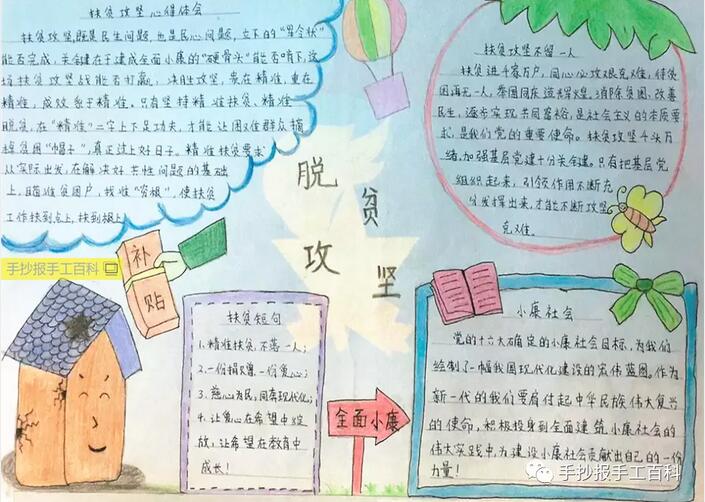 扶贫攻坚心得体会
扶贫攻坚,既是民生问题,也是民心问题,立下的“军令状”
能否完成,关键在于建成全面小康的“硬骨头”能否啃下,这
场扶贫攻坚战能否打赢,决胜攻坚,贵在精准,重在
精准,成效系于精准。只有坚持精准扶贫、精准
脱贫,在“精准”二字上下足功夫,才能让困难群众摘
掉贫困“帽子”,真正过上好日子。精准扶贫要求
从实际出发,在解决好共性问题的基础
上,瞄准贫困户,找准“穷根”,使扶贫
工作扶到点上,扶到根上
扶贫攻坚不留一人
扶贫进千家万户,同心心攻艰克难,待贫
困再无一人,泰国同庆造共辉煌,消除贫困,改善
民生,逐步实现共同富裕,是社会主义的本质要
求,是我们党的重要使命。扶贫攻坚千头万
绪,加强基层党建十分关键。只有把基层党
组织起来,引领作用不断充
分发挥出来,才能不断攻坚
克难。
脱贫
攻坚
手抄报手工百科
补
贴
扶贫短句
1.精准扶贫,不落一人;
2.一份捐赠,一份爱心;
3.慈心为民,同奔现代化;
4.让爱心在希望中绽
放,让希望在教育中
成长!
全面小康
小康社会
党的十六大确定的小康社会目标,为我们
绘制了一幅我国现代化建设的宏伟蓝图。作为
新一代的我们要肩付起中华民族伟大复兴
的使命,积极投身到全面建筑小康社会的
伟大实践中为建设小康社会贡献出自己的一份
力量!
手抄报手工百科